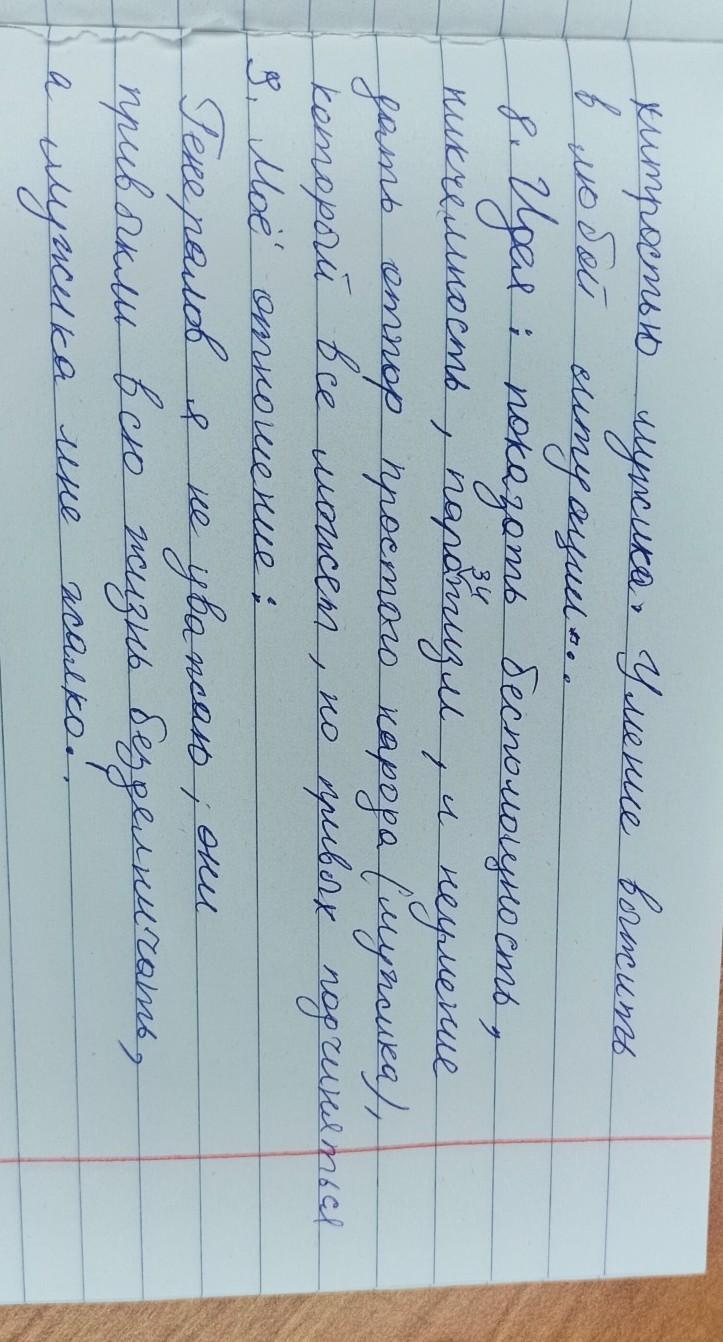 хитростью мужика. Умение выжить
в любой ситуации".
8. Идея: показать беспомощность,
никчемность, паразитизм, и неумение
дать отпор простого народа (мужика),
который все может, но привык подчиняться
9. Моё отношение:
Генералов я не уважаю, они
привыкли всю жизнь бездельничать,
а мужика мне жалко.